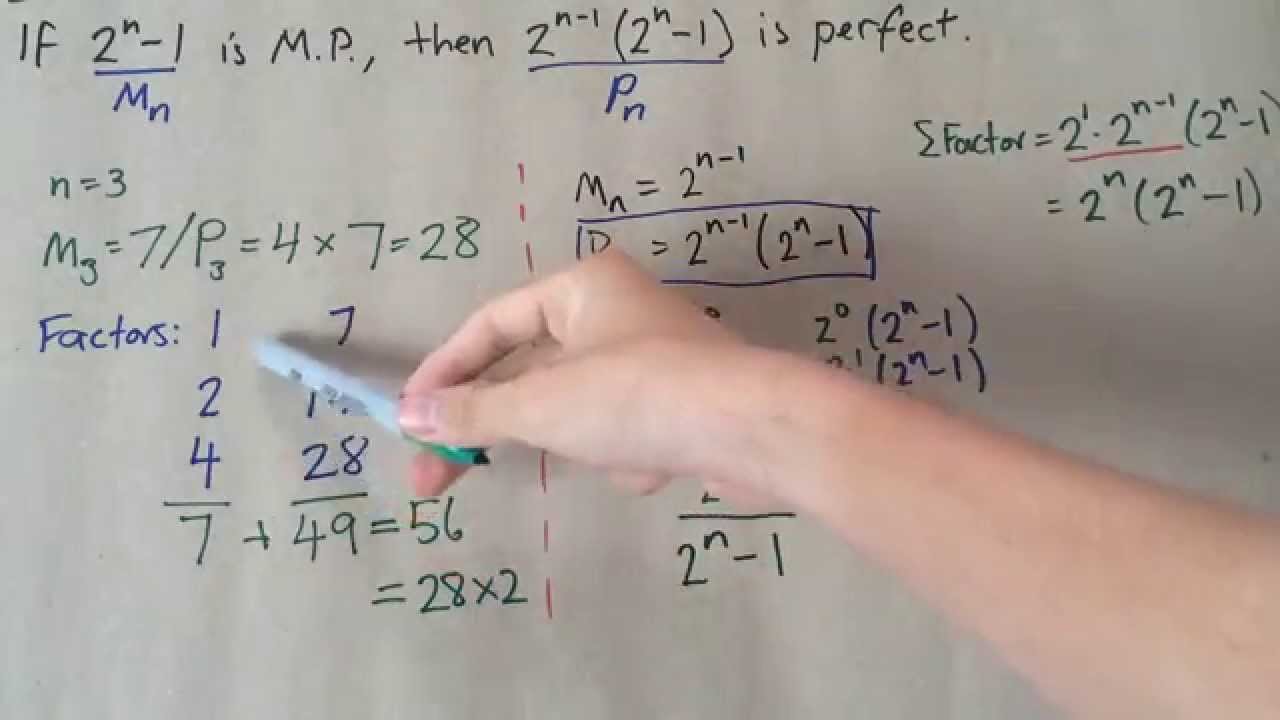 If 2ⁿ-1 is M.P., then 2ⁿ⁻¹(2ⁿ-1) is perfect.
Mₙ Pₙ
ΣFactor = 2¹·2ⁿ⁻¹(2ⁿ-1)
= 2ⁿ(2ⁿ-1)
n=3
M₃=7/P₃=4×7=28
Factors: 1 7
2
4 28
7 + 49 = 56
= 28×2
Mₙ = 2ⁿ⁻¹
= 2ⁿ⁻¹(2ⁿ-1)
2⁰(2ⁿ-1)
(2ⁿ-1)
2ⁿ-1